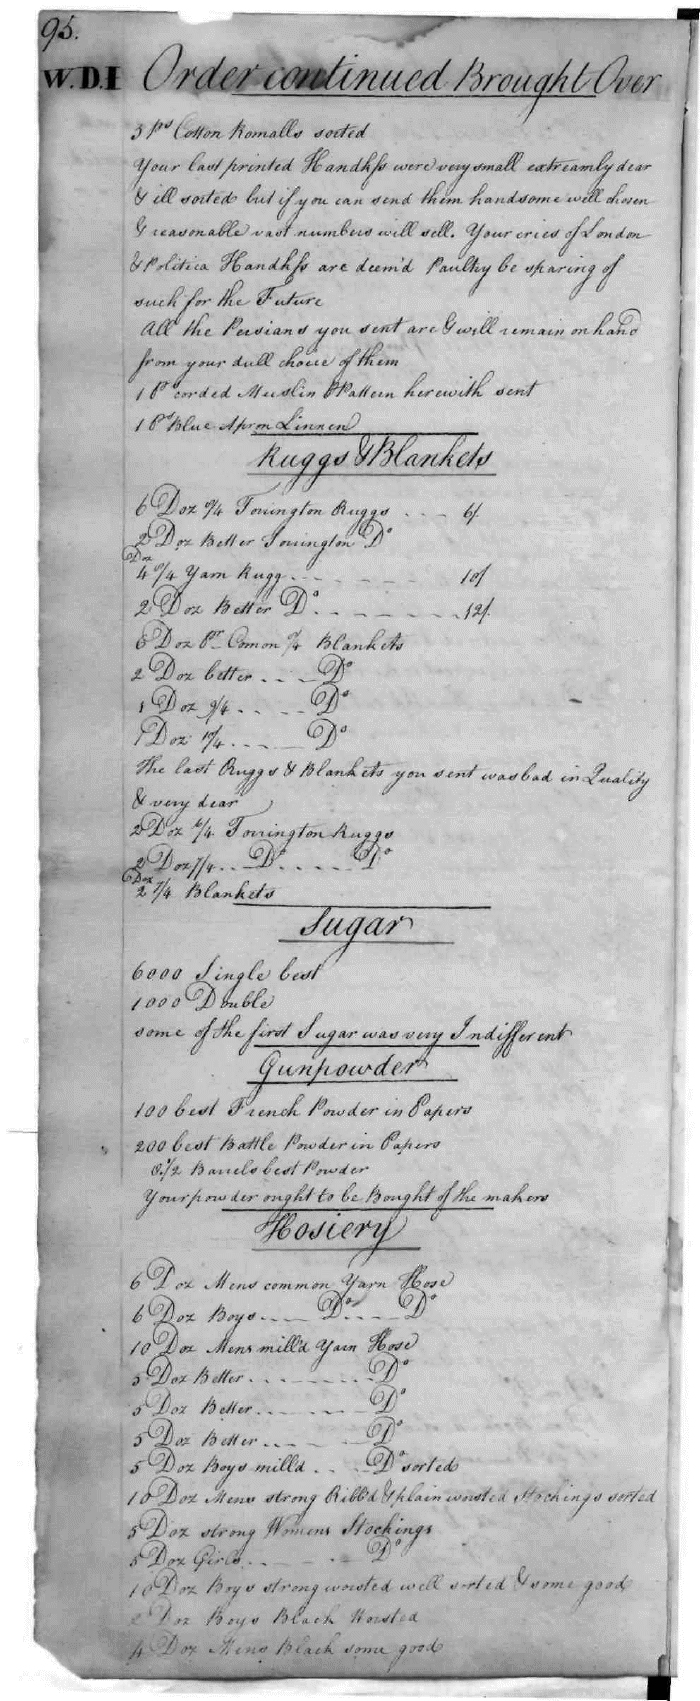 95.
W.D.I Order continued Brought Over
5 Ps Cotton Romalls sorted
Your last printed Handkfs were very small extreamly dear
& ill sorted but if you can send them handsome well chosen
& reasonable vast numbers will sell. Your cries of London
& Politica Handkfs are deem'd Paultry be sparing of
such for the Future
All the Persians you sent are & will remain on hand
from your dull choice of them
1 Ps corded Muslin P Pattern herewith sent
1 Ps Blue Apron Linnen
Ruggs & Blankets
6 Doz /4 Torrington Ruggs ... 6/.
2 Doz Better Torrington Do
Doz
4 /4 Yarn Rugg ... 10/
2 Doz Better Do ... 12/.
6 Doz Pr Comon /4 Blankets
2 Doz better .... Do
1 Doz 9/4 .... Do
1 Doz /4 .... Do
The last Ruggs & Blankets you sent was bad in Quality
& very dear
2 Doz /4 Torrington Ruggs
2 Doz 7/4 .. Do ..... Do
Doz
2 7/4 Blankets
Sugar
6000 Single best
1000 Double
some of the first Sugar was very Indifferent
Gunpowder
100 best French Powder in Papers
200 best Battle Powder in Papers
8. 1/2 Barrels best Powder
Your powder ought to be Bought of the makers
Hosiery
6 Doz Mens common Yarn Hose
6 Doz Boys .... Do .... Do
10 Doz Mens mill'd Yarn Hose
5 Doz Better ........ Do
5 Doz Better ....... Do
5 Doz Better ... Do
5 Doz Boys milld .. Do sorted
10 Doz Mens strong Ribb'd & plain worsted Stockings sorted
5 Doz strong Womens Stockings
5 Doz Girls .... Do
10 Doz Boys strong worsted well sorted & some good
2 Doz Boys Black Worsted
4 Doz Mens Black some good